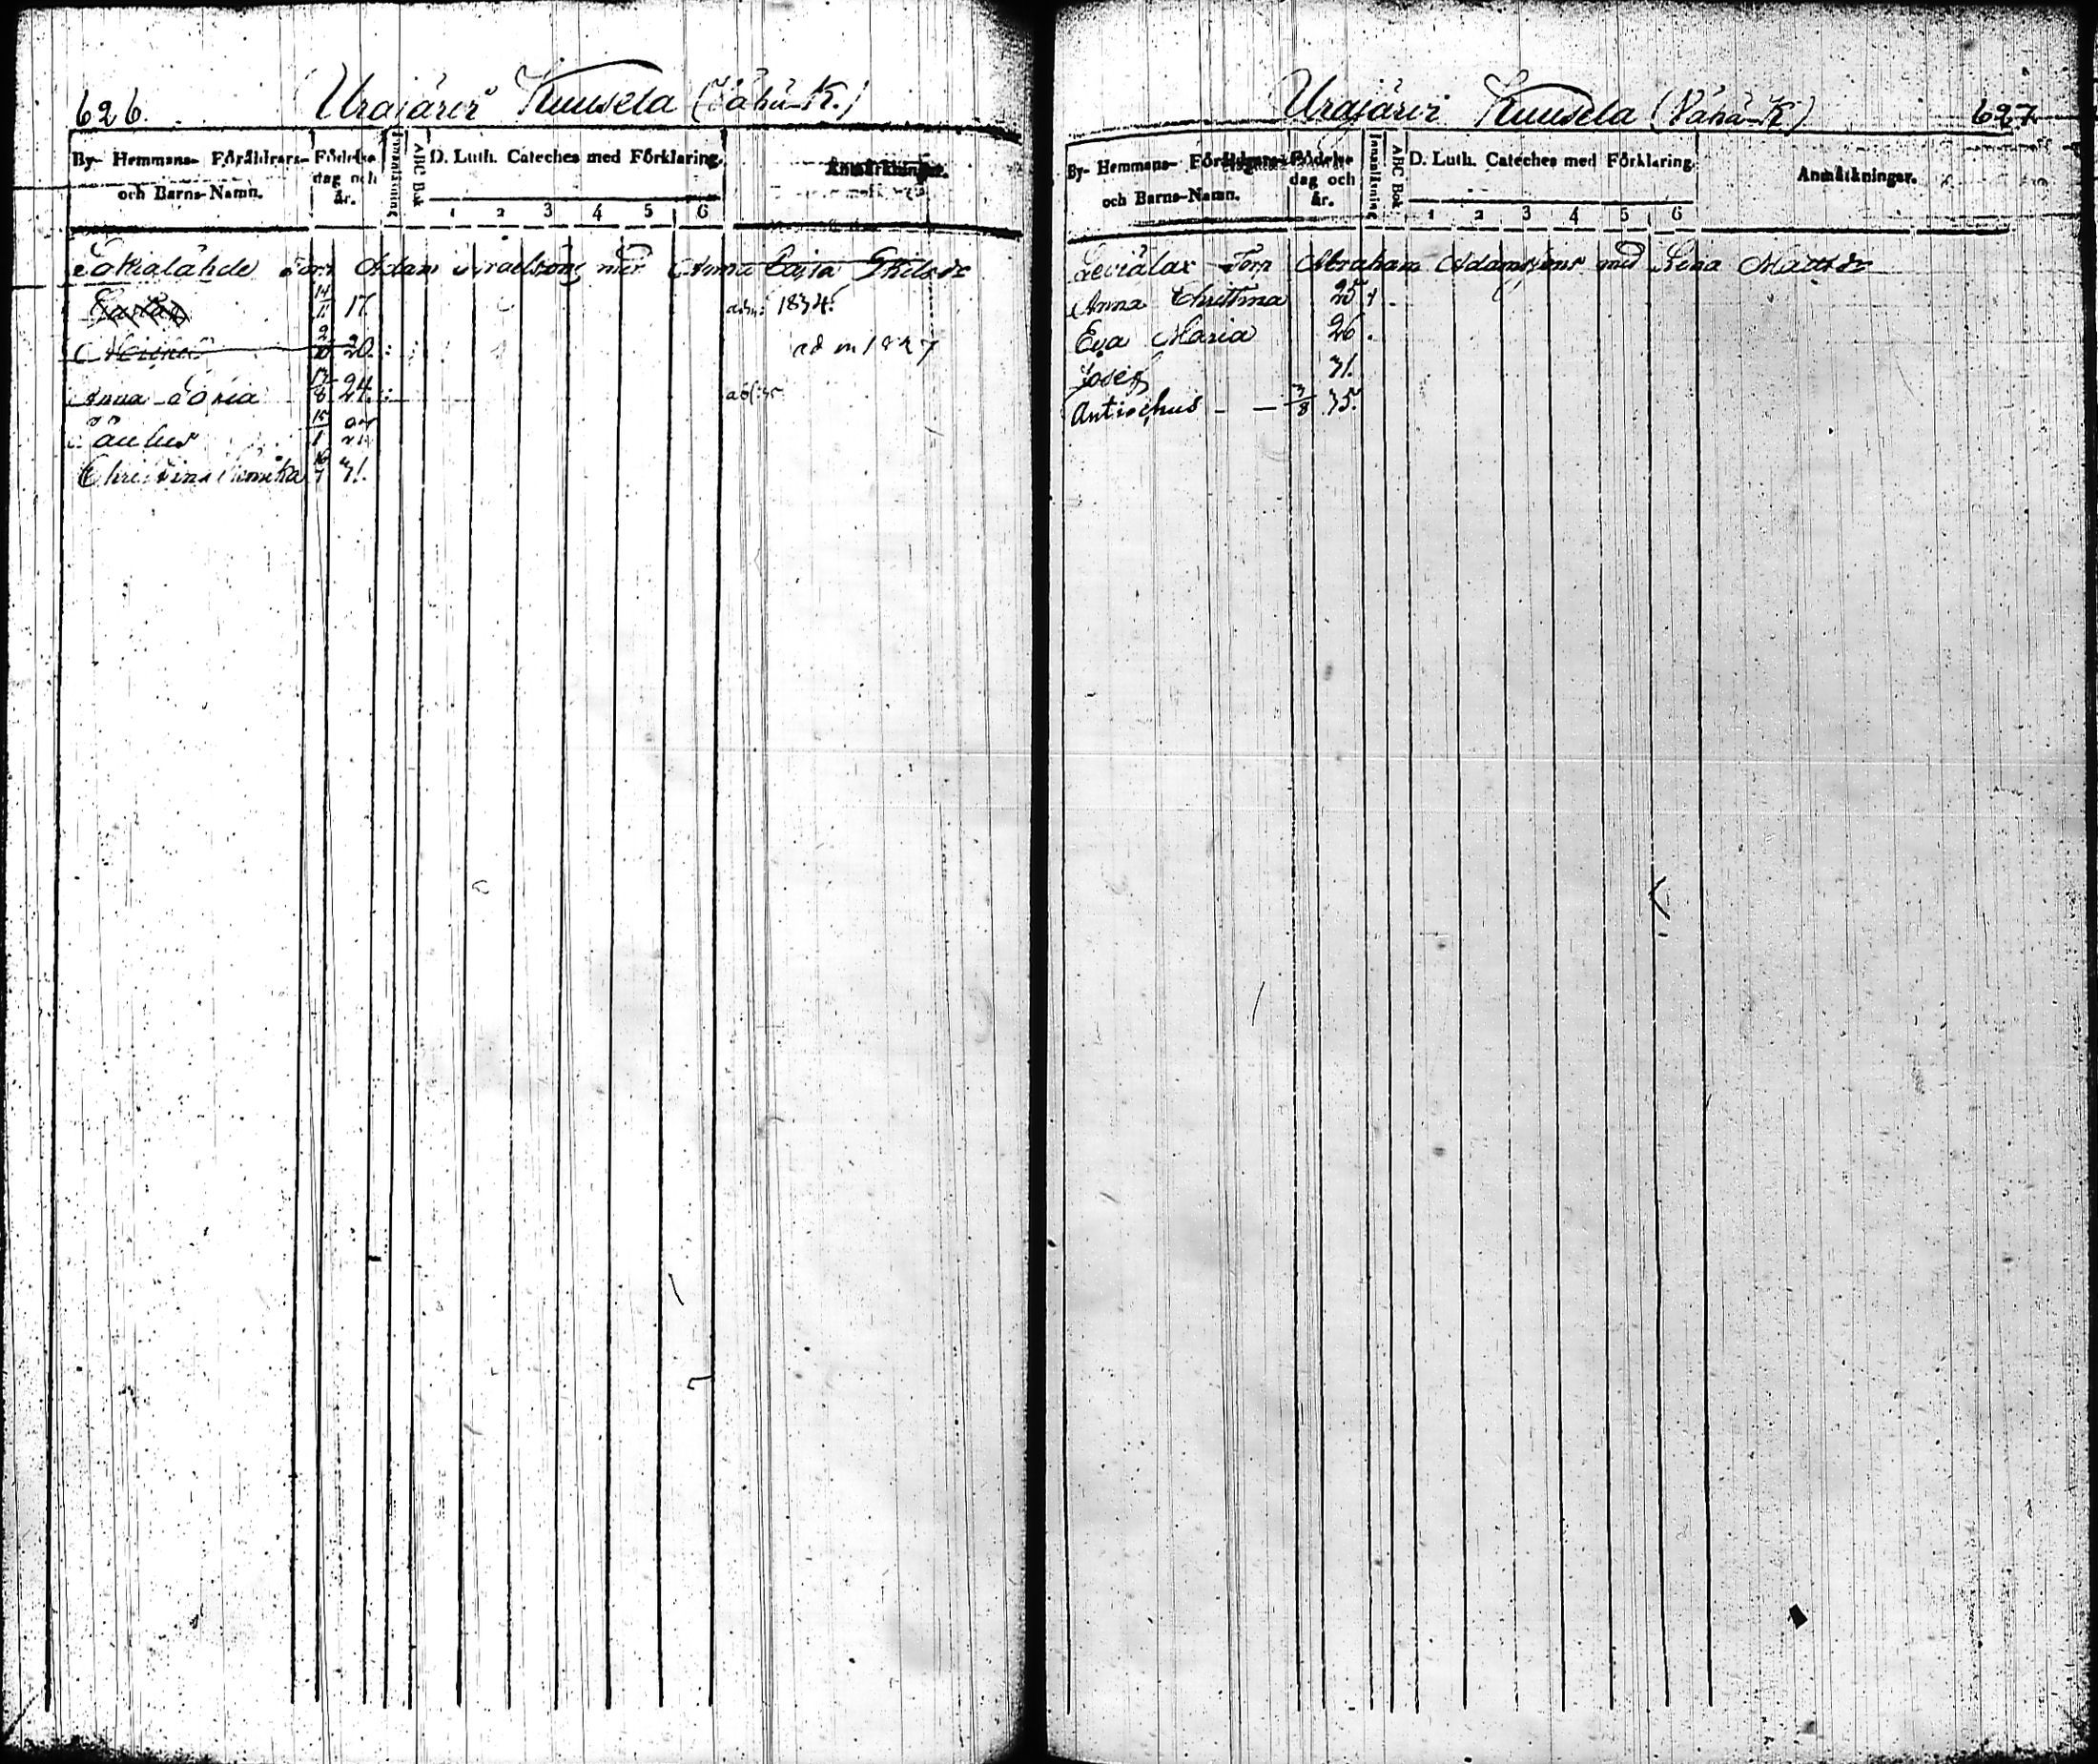 626. Urajärvi Kuusela (Vähä-K.)
By- Hemmans- Föräldrars- och Barns-Namn. Födelse dag och år. Innanläsning ABC Bok D. Luth. Cateches med Förklaring. Anmärkningar.
1 2 3 4 5 6
Torp Adam Israelssons med Anna Cajsa
14/11 17. adm: 1834.
20. : adm 1837
Anna 17/8 24. :
15/1
Christina 16/7 31.
Urajärvi Kuusela (Vähä-K) 627
By- Hemmans- Föräldrars- och Barns-Namn. Födelse dag och år. Innanläsning ABC Bok D. Luth. Cateches med Förklaring. Anmärkningar.
1 2 3 4 5 6
Torp Abraham Adamssons med Lena Mattsdr
Anna Christina 25.
Eva Maria 26.
Josef 31.
Antiochus - - 7/8 35.